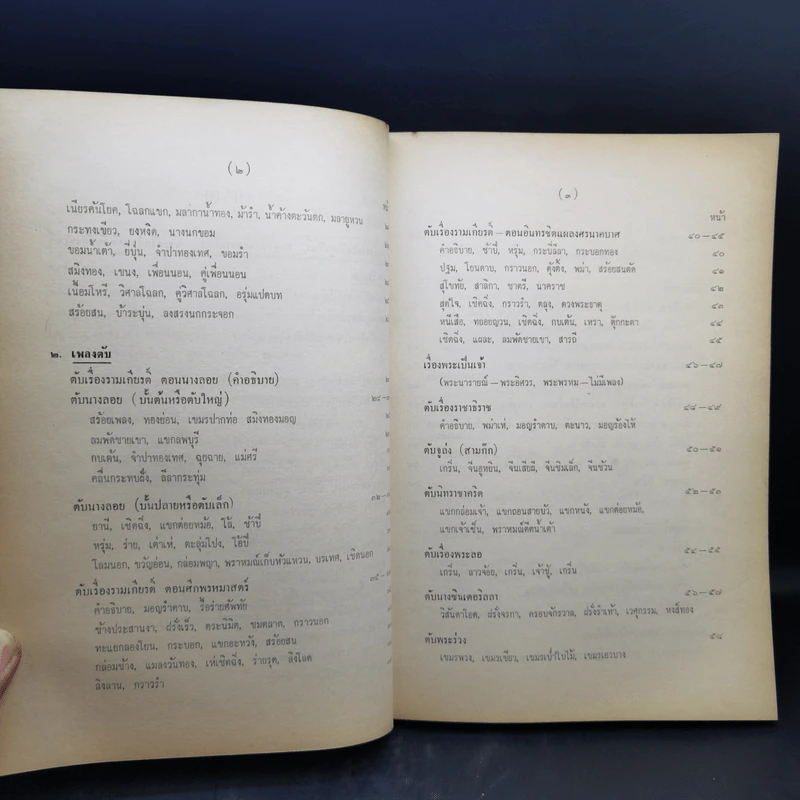 (๒)
เนียรคันโยค, โฉลกแขก, มลากาน้ำทอง, ม้ารำ, น้ำค้างตะวันตก, มลายูหวน
กระทงเขียว, ยงหงิด, นางนกขอม
ขอมน้ำเต้า, ยี่ปุ่น, จำปาทองเทศ, ขอมรำ
สมิงทอง, เขนง, เพื่อนนอน, คู่เพื่อนนอน
เนื้อมโหรี, วิศาลโฉลก, คู่วิศาลโฉลก, อรุ่มแปดบท
สร้อยสน, บ้าระบุ่น, ลงสรงนกกระจอก
๒. เพลงตับ
ตับเรื่องรามเกียรติ์ ตอนนางลอย (คำอธิบาย)
ตับนางลอย (บั้นต้นหรือตับใหญ่)
สร้อยเพลง, ทองย่อน, เขมรปากท่อ สมิงทองมอญ
ลมพัดชายเขา, แขกลพบุรี
กบเต้น, จำปาทองเทศ, ฉุยฉาย, แม่ศรี
คลื่นกระทบฝั่ง, ลีลากระทุ่ม
ตับนางลอย (บั้นปลายหรือตับเล็ก)
ยานี, เชิดฉิ่ง, แขกต่อยหม้อ, โล้, ช้าปี่
หรุ่ม, ร่าย, เต่าเห่, ตะลุ่มโปง, โอ้ปี่
โลมนอก, ขวัญอ่อน, กล่อมพญา, พราหมณ์เก็บหัวแหวน, บรเทศ, เชิดนอก
ตับเรื่องรามเกียรติ์ ตอนศึกพรหมาสตร์
คำอธิบาย, มอญรำดาบ, รื้อร่ายศัพทัย
ช้างประสานงา, ฝรั่งเร็ว, ตระนิมิต, ชมตลาด, กราวนอก
ทะแยกลองโยน, กระบอก, แขกอะหวัง, สร้อยสน
กล่อมช้าง, แมลงวันทอง, เห่เชิดฉิ่ง, ร่ายรุด, ลิงโลด
ลิงลาน, กราวรำ
(๓)
หน้า
ตับเรื่องรามเกียรติ์—ตอนอินทรชิตแผลงศรนาคบาศ ๔๐—๔๕
คำอธิบาย, ช้าปี่, หรุ่ม, กระบี่ลีลา, กระบอกทอง ๔๐
ปฐม, โยนดาบ, กราวนอก, ตุ้งติ้ง, พม่า, สร้อยสนตัด ๔๑
สุโขทัย, สาลิกา, ชาตรี, นาคราช ๔๒
สุดใจ, เชิดฉิ่ง, กราวรำ, ตลุง, ดวงพระธาตุ ๔๓
หนีเสือ, ทยอยญวน, เชิดฉิ่ง, กบเต้น, เหรา, ตุ๊กกะตา ๔๔
เชิดฉิ่ง, แผละ, ลมพัดชายเขา, สารถี ๔๕
เรื่องพระเป็นเจ้า ๔๖—๔๗
(พระนารายณ์—พระอิศวร, พระพรหม—ไม่มีเพลง)
ตับเรื่องราชาธิราช ๔๘—๔๙
คำอธิบาย, พม่าเห่, มอญรำดาบ, ตะนาว, มอญร้องไห้
ตับจูล่ง (สามก๊ก) ๕๐—๕๑
เกริ่น, จีนฮูหยิน, จีนเสียผี, จีนขิมเล็ก, จีนช้วน
ตับนิทราชาคริต ๕๒—๕๓
แขกกล่อมเจ้า, แขกถอนสายบัว, แขกหนัง, แขกต่อยหม้อ,
แขกเจ้าเซ็น, พราหมณ์ดีดน้ำเต้า
ตับเรื่องพระลอ ๕๔—๕๕
เกริ่น, ลาวจ้อย, เกริ่น, เจ้าชู้, เกริ่น
ตับนางซินเดอริลลา ๕๖—๕๗
วิลันดาโอด, ฝรั่งจรกา, ครอบจักรวาล, ฝรั่งรำเท้า, เวสุกรรม, หงส์ทอง
ตับพระร่วง ๕๘
เขมรพวง, เขมรเขียว, เขมรเป่าใบไม้, เขมรเอวบาง